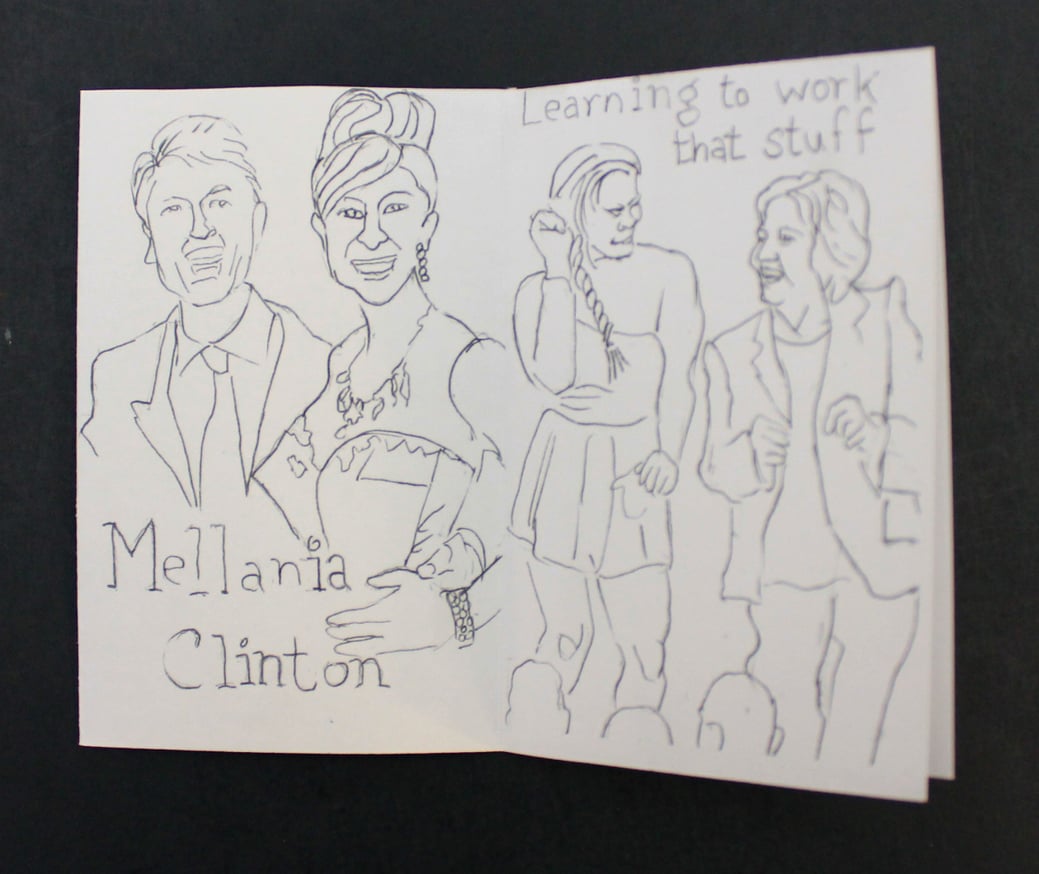 Mellania
Clinton
Learning to work
that stuff